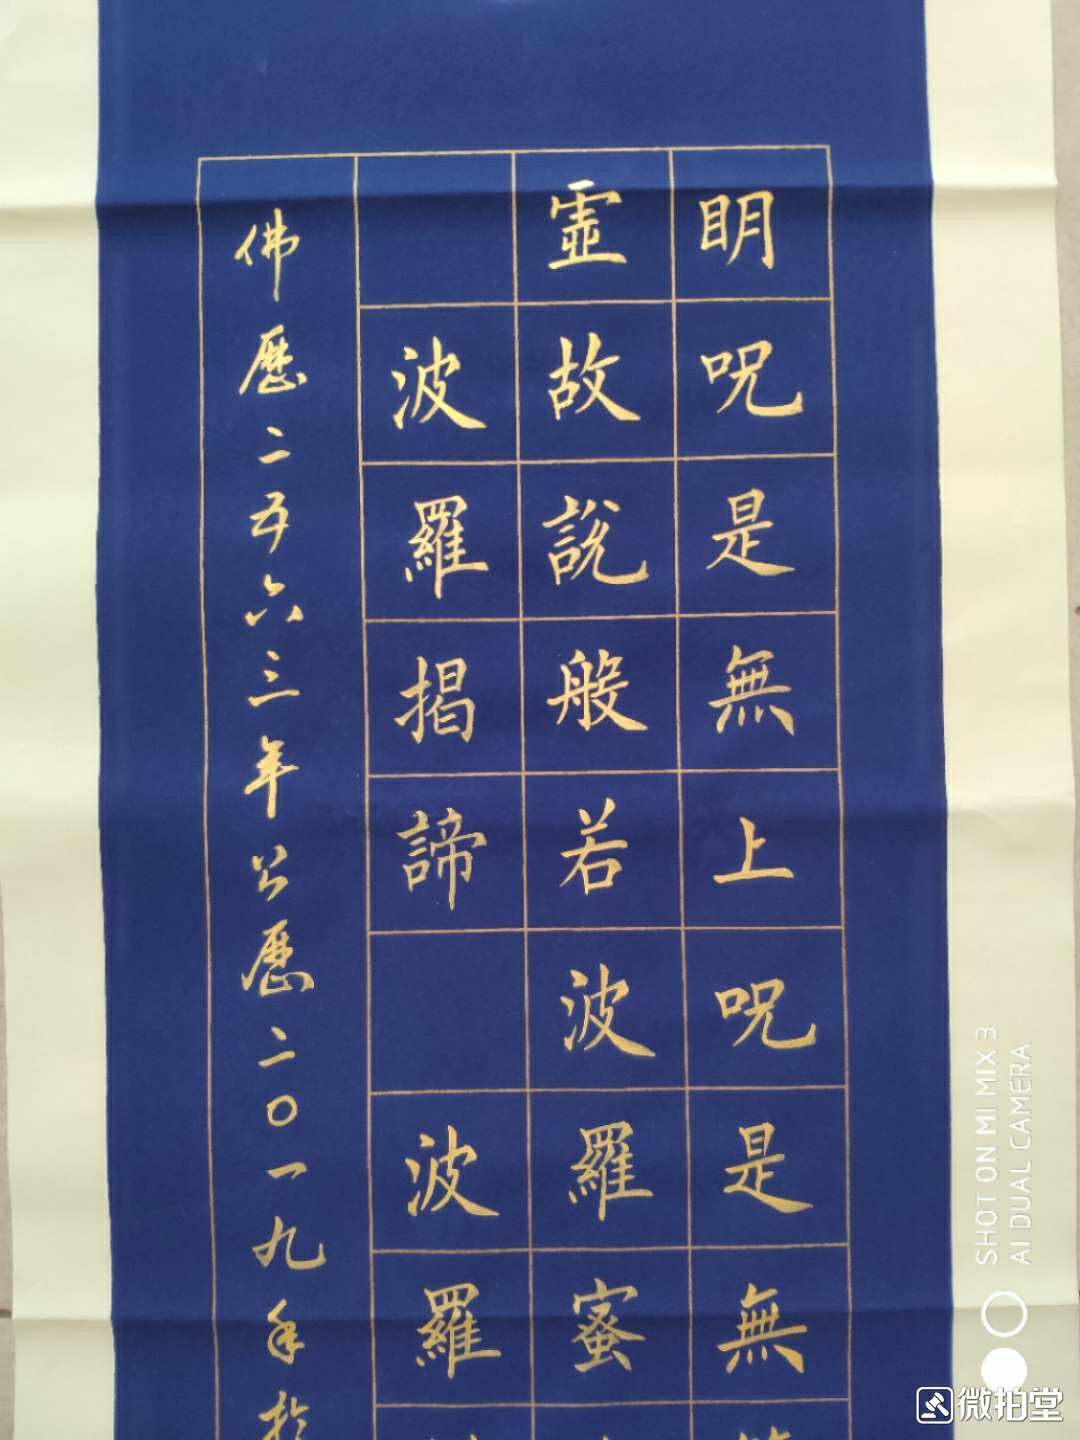 明呪是無上呪是無
虚故說般若波羅蜜
波羅揭諦 波羅
佛歷二五六三年公歷二〇一九年於
SHOT ON MI MIX 3
AI DUAL CAMERA
微拍堂